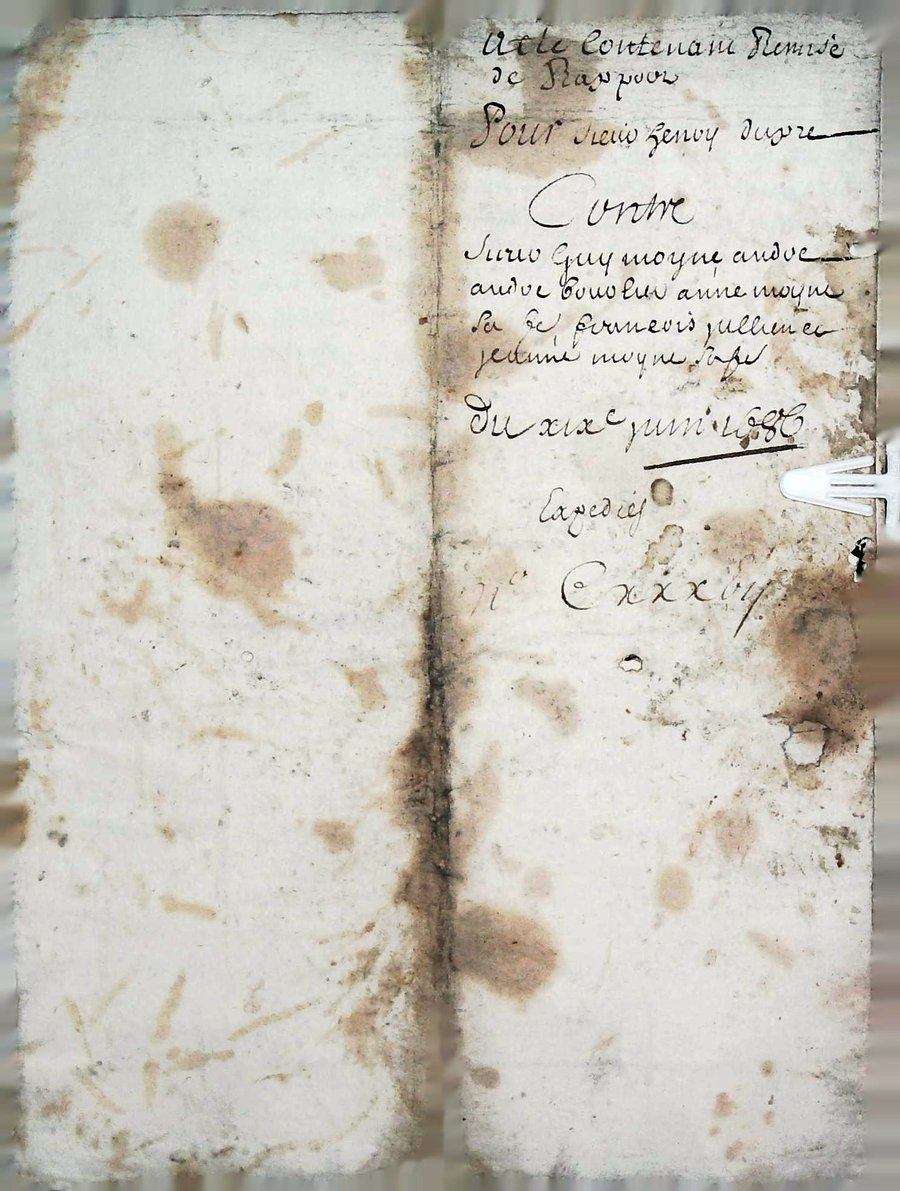 Acte Contenant Remise
de Rappour
Pour sieur henry dupre
Contre
sieur Guy moyne andre
andre anne moyne
sa fe francois jullien et
jeanne moyne sa fe
Du xixe juin 1686
Expediej
No Cxxxvij